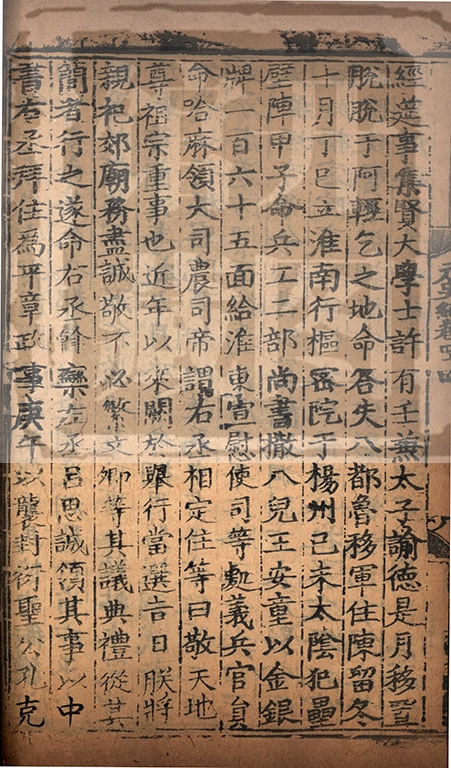 經筵事集賢大學士許有壬兼太子諭德是月移置
脫脫于阿輕乞之地命答失八都魯移軍住陳留冬
十月丁巳立淮南行樞密院于楊州己未太陰犯壘
壁陣甲子命兵工二部尚書撒八兒王安童以金銀
牌一百六十五面給淮東宣慰使司等處義兵官員
命哈麻領大司農司帝謂右丞相定住等曰敬天地
尊祖宗重事也近年以來闕於舉行當選吉日朕將
親祀郊廟務盡誠敬不必繁文卿等其議典禮從其
簡者行之遂命右丞斡欒左丞呂思誠領其事以中
書右丞拜住爲平章政事庚午以襲封衍聖公孔克
元史紀卷四四